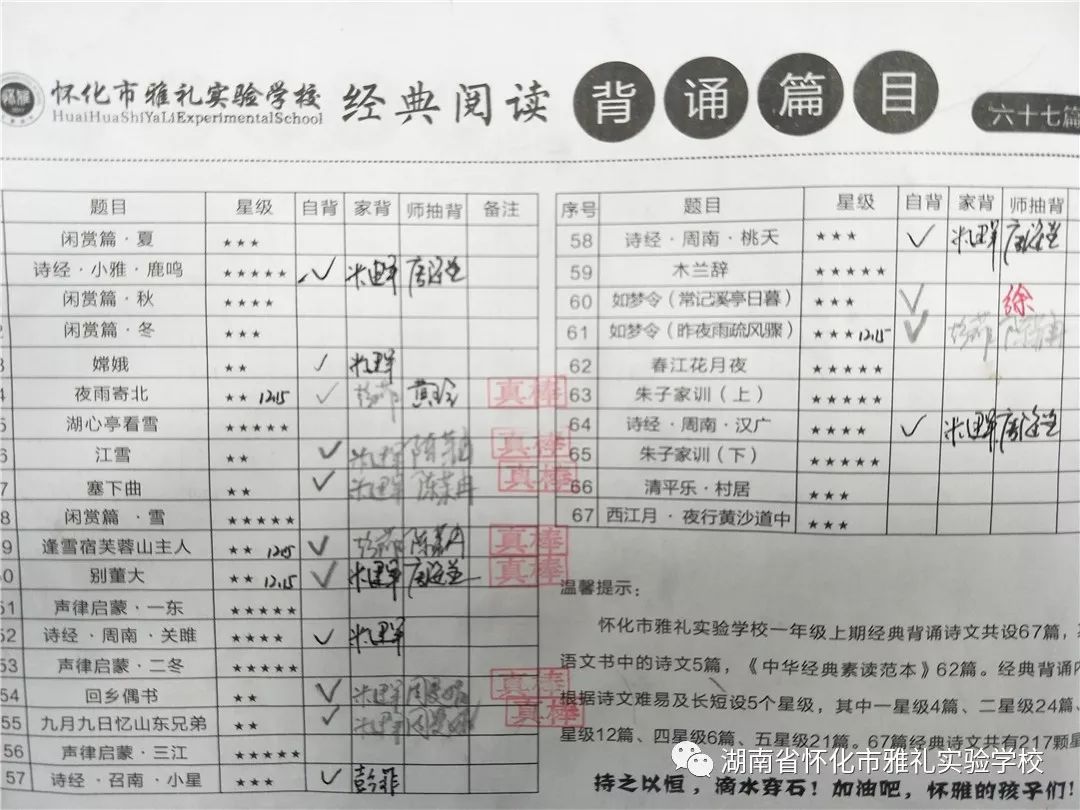 怀化市雅礼实验学校 经典阅读 背诵篇目 六十七篇
HuaiHuaShiYaLiExperimentalSchool
题目 星级 自背 家背 师抽背 备注
闲赏篇·夏 ★★★
诗经·小雅·鹿鸣 ★★★★★ ✓
闲赏篇·秋 ★★★★
闲赏篇·冬 ★★★
嫦娥 ★★ ✓
夜雨寄北 ★★ 12.15 ✓ 真棒
湖心亭看雪 ★★★★★
江雪 ★★ ✓ 真棒
塞下曲 ★★ ✓ 真棒
闲赏篇·雪 ★★★★★
逢雪宿芙蓉山主人 ★★ 12.15 ✓ 真棒
别董大 ★★ 12.15 ✓ 真棒
51 声律启蒙·一东 ★★★★★
52 诗经·周南·关雎 ★★★★ ✓
53 声律启蒙·二冬 ★★★★★
54 回乡偶书 ★★ ✓ 真棒
55 九月九日忆山东兄弟 ★★ ✓ 真棒
56 声律启蒙·三江 ★★★★★
57 诗经·召南·小星 ★★★ ✓ 彭菲
序号 题目 星级 自背 家背 师抽背
58 诗经·周南·桃夭 ★★★ ✓
59 木兰辞 ★★★★★
60 如梦令(常记溪亭日暮) ★★★ ✓ 徐
61 如梦令(昨夜雨疏风骤) ★★★ 12.15 ✓
62 春江花月夜 ★★★★★
63 朱子家训(上) ★★★★★
64 诗经·周南·汉广 ★★★★ ✓
65 朱子家训(下) ★★★★★
66 清平乐·村居 ★★★
67 西江月·夜行黄沙道中 ★★★
温馨提示:
怀化市雅礼实验学校一年级上期经典背诵诗文共设67篇,
语文书中的诗文5篇,《中华经典素读范本》62篇。经典背诵内
根据诗文难易及长短设5个星级,其中一星级4篇、二星级24篇、
星级12篇、四星级6篇、五星级21篇。67篇经典诗文共有217颗星
持之以恒,滴水穿石!加油吧,怀雅的孩子们!
湖南省怀化市雅礼实验学校